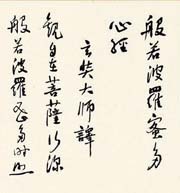 般若波羅蜜多
心經
玄奘大師譯
觀自在菩薩行深
般若波羅蜜多時照